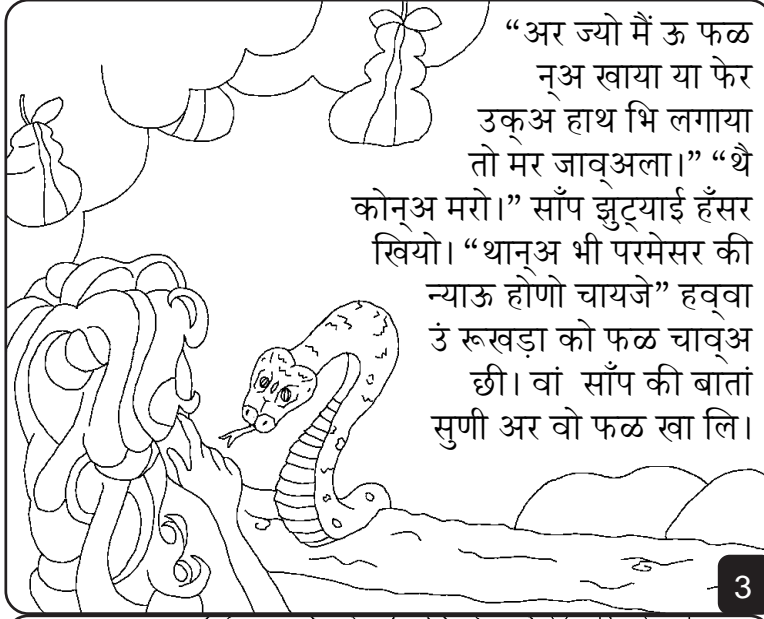 “अर ज्यो मैं ऊ फळ
न्अ खाया या फेर
उक्अ हाथ भि लगाया
तो मर जाव्अला।” “थै
कोन्अ मरो।” साँप झुट्याई हँसर
खियो। “थान्अ भी परमेसर की
न्याऊ होणो चायजे” हव्वा
उं रूखड़ा को फळ चाव्अ
छी। वां साँप की बातां
सुणी अर वो फळ खा लि।
3